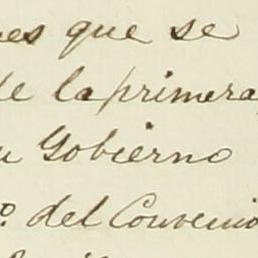 es que se
de la primera
u Gobierno
o. del Convenio